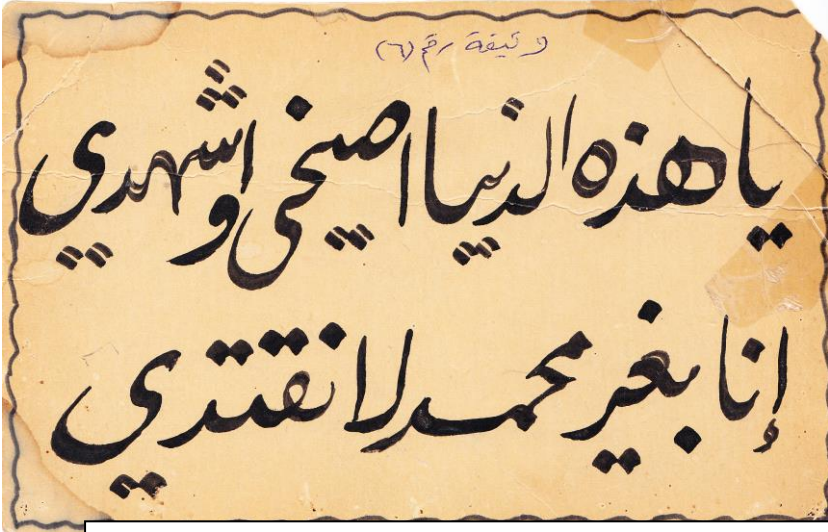 وثيقة رقم (٦)
يا هذه الدنيا اصيخي واشهدي
إنا بغير محمد لا نقتدي